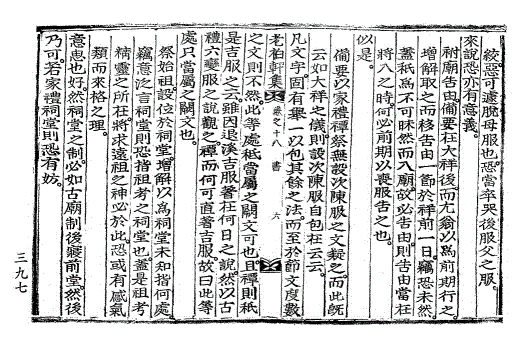 絞惡可遽脫母服也恐當卒哭後服父之服
來說恐亦有意義
祔廟告由備要在大祥後而尤翁以爲前期行之
增解取之而移告由一節於祥前一日竊恐未然
蓋秖爲不可昧然而入廟故必告由則告由當在
將入之時何必前期以喪服告之也
似是
備要以家禮禫祭無設次陳服之文疑之而此旣
云如大祥之儀則設次陳服自包在云云
凡文字固有擧一以包其餘之法而至於節文度數
之文則不然此等處秪當屬之闕文可也且禫則秪
是吉服之云雖因退溪吉服著在何日之說然以古
禮六變服之說觀之禫而何可直著吉服故曰此等
處只當屬之闕文也
祭始祖設位於祠堂增解以爲祠堂未知指何處
竊意泛言祠堂則恐指祖考之祠堂也蓋是祖考
精靈之所在將求遠祖之神必於此恐或有感氣
類而來格之理
意思也好然祠堂之制必如古廟制後寢前堂然後
乃可若家禮祠堂則恐有妨
老柏軒集
卷之十八 書 六
三九七